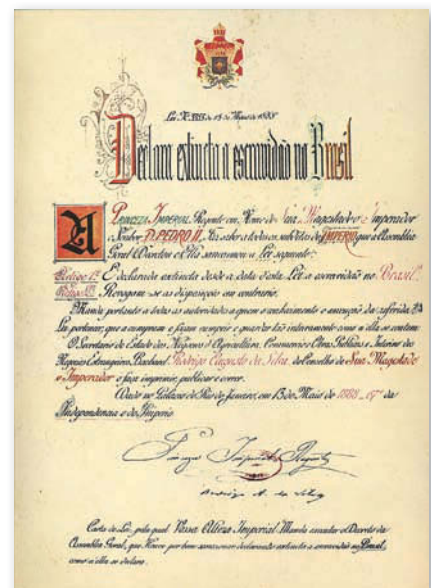 Lei Nº 3353 de 13 de Maio de 1888
Declara extincta a escravidão no Brasil
A PRINCEZA IMPERIAL Regente em Nome de Sua Magestade o Imperador
o Senhor D. PEDRO II, Faz saber a todos os subditos do IMPERIO que a Assembléa
Geral Decretou e Ella sanccionou a Lei seguinte:
Artigo 1º É declarada extincta desde a data d'esta Lei a escravidão no Brazil.
Artigo 2º Revogam-se as disposições em contrario.
Manda portanto a todas as autoridades a quem o conhecimento e execução da referida
Lei pertencer, que a cumpram e façam cumprir e guardar tão inteiramente como n'ella se contem.
O Secretario de Estado dos Negocios d'Agricultura, Commercio e Obras Publicas e Interino dos
Negocios Estrangeiros, Bacharel Rodrigo Augusto da Silva, do Conselho de Sua Magestade
o Imperador o faça imprimir, publicar e correr.
Dado no Palacio do Rio de Janeiro, em 13 de Maio de 1888 - 67º da
Independencia e do Imperio
Princeza Imperial Regente
Rodrigo A. da Silva
Carta de Lei, pela qual Vossa Alteza Imperial Manda executar o Decreto da
Assembléa Geral, que Houve por bem sanccionar declarando extincta a escravidão no Brazil,
como n'ella se declara.